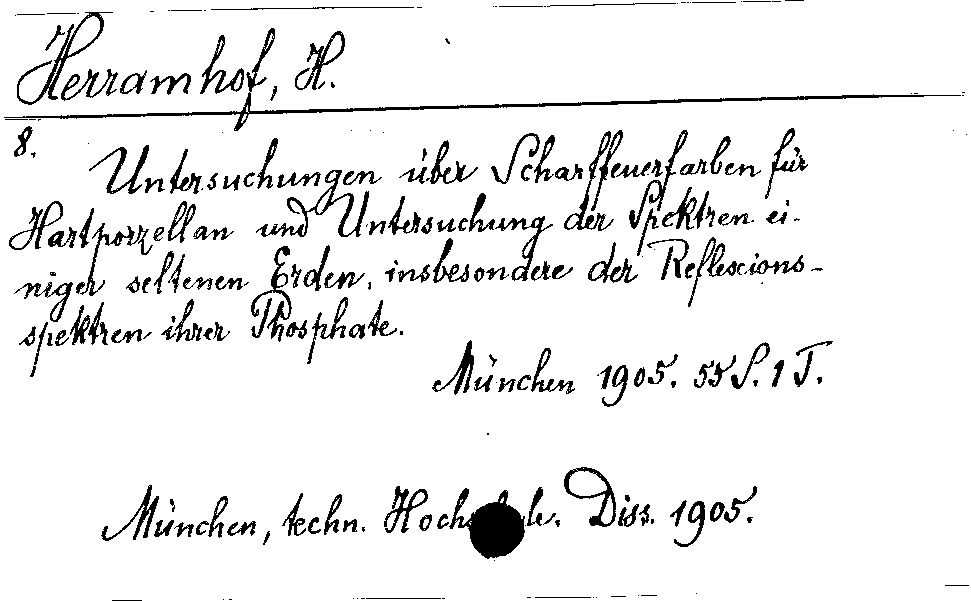 Herramhof, H.
8.
Untersuchungen über Scharffeuerfarben für
Hartporzellan und Untersuchung der Spektren ei-
niger seltenen Erden, insbesondere der Reflexions-
spektren ihrer Phosphate.
München 1905. 55 S. 1 T.
München, techn. Diss. 1905.